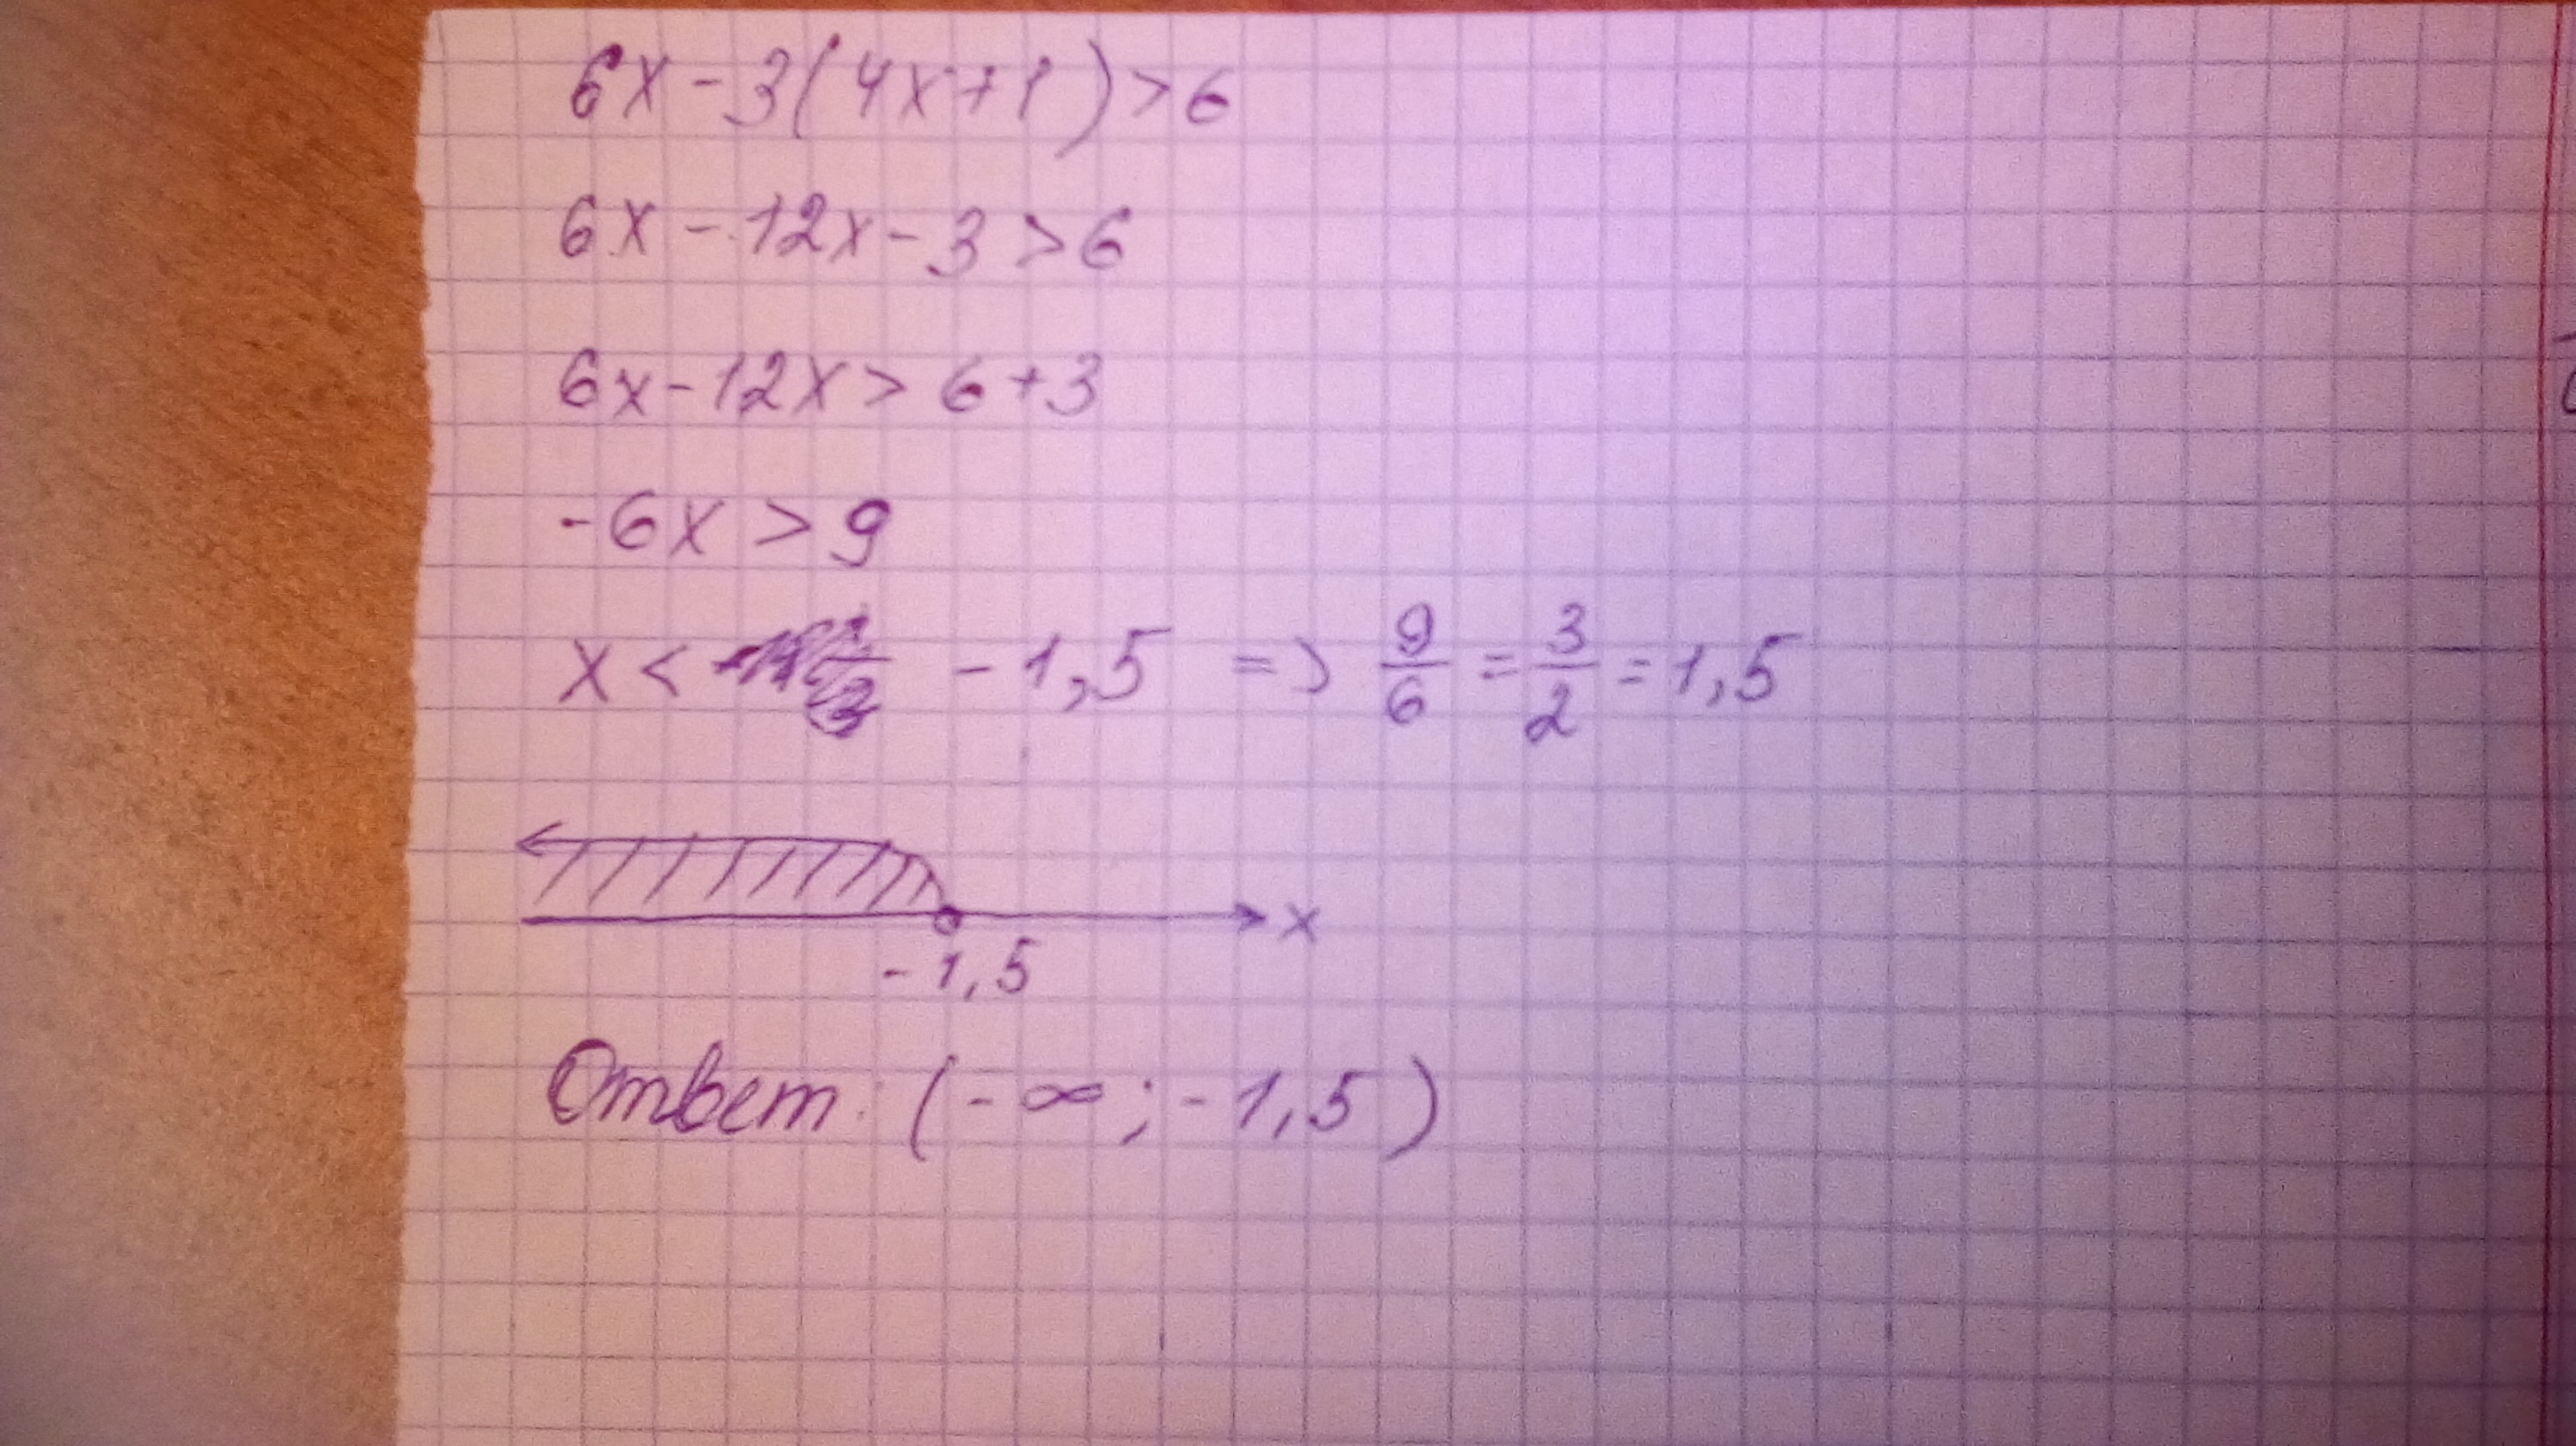 6x - 3(4x+1) > 6
6x - 12x - 3 > 6
6x - 12x > 6 + 3
-6x > 9
x < - 1,5 => 9/6 = 3/2 = 1,5
x
- 1,5
Ответ: (-∞; -1,5)